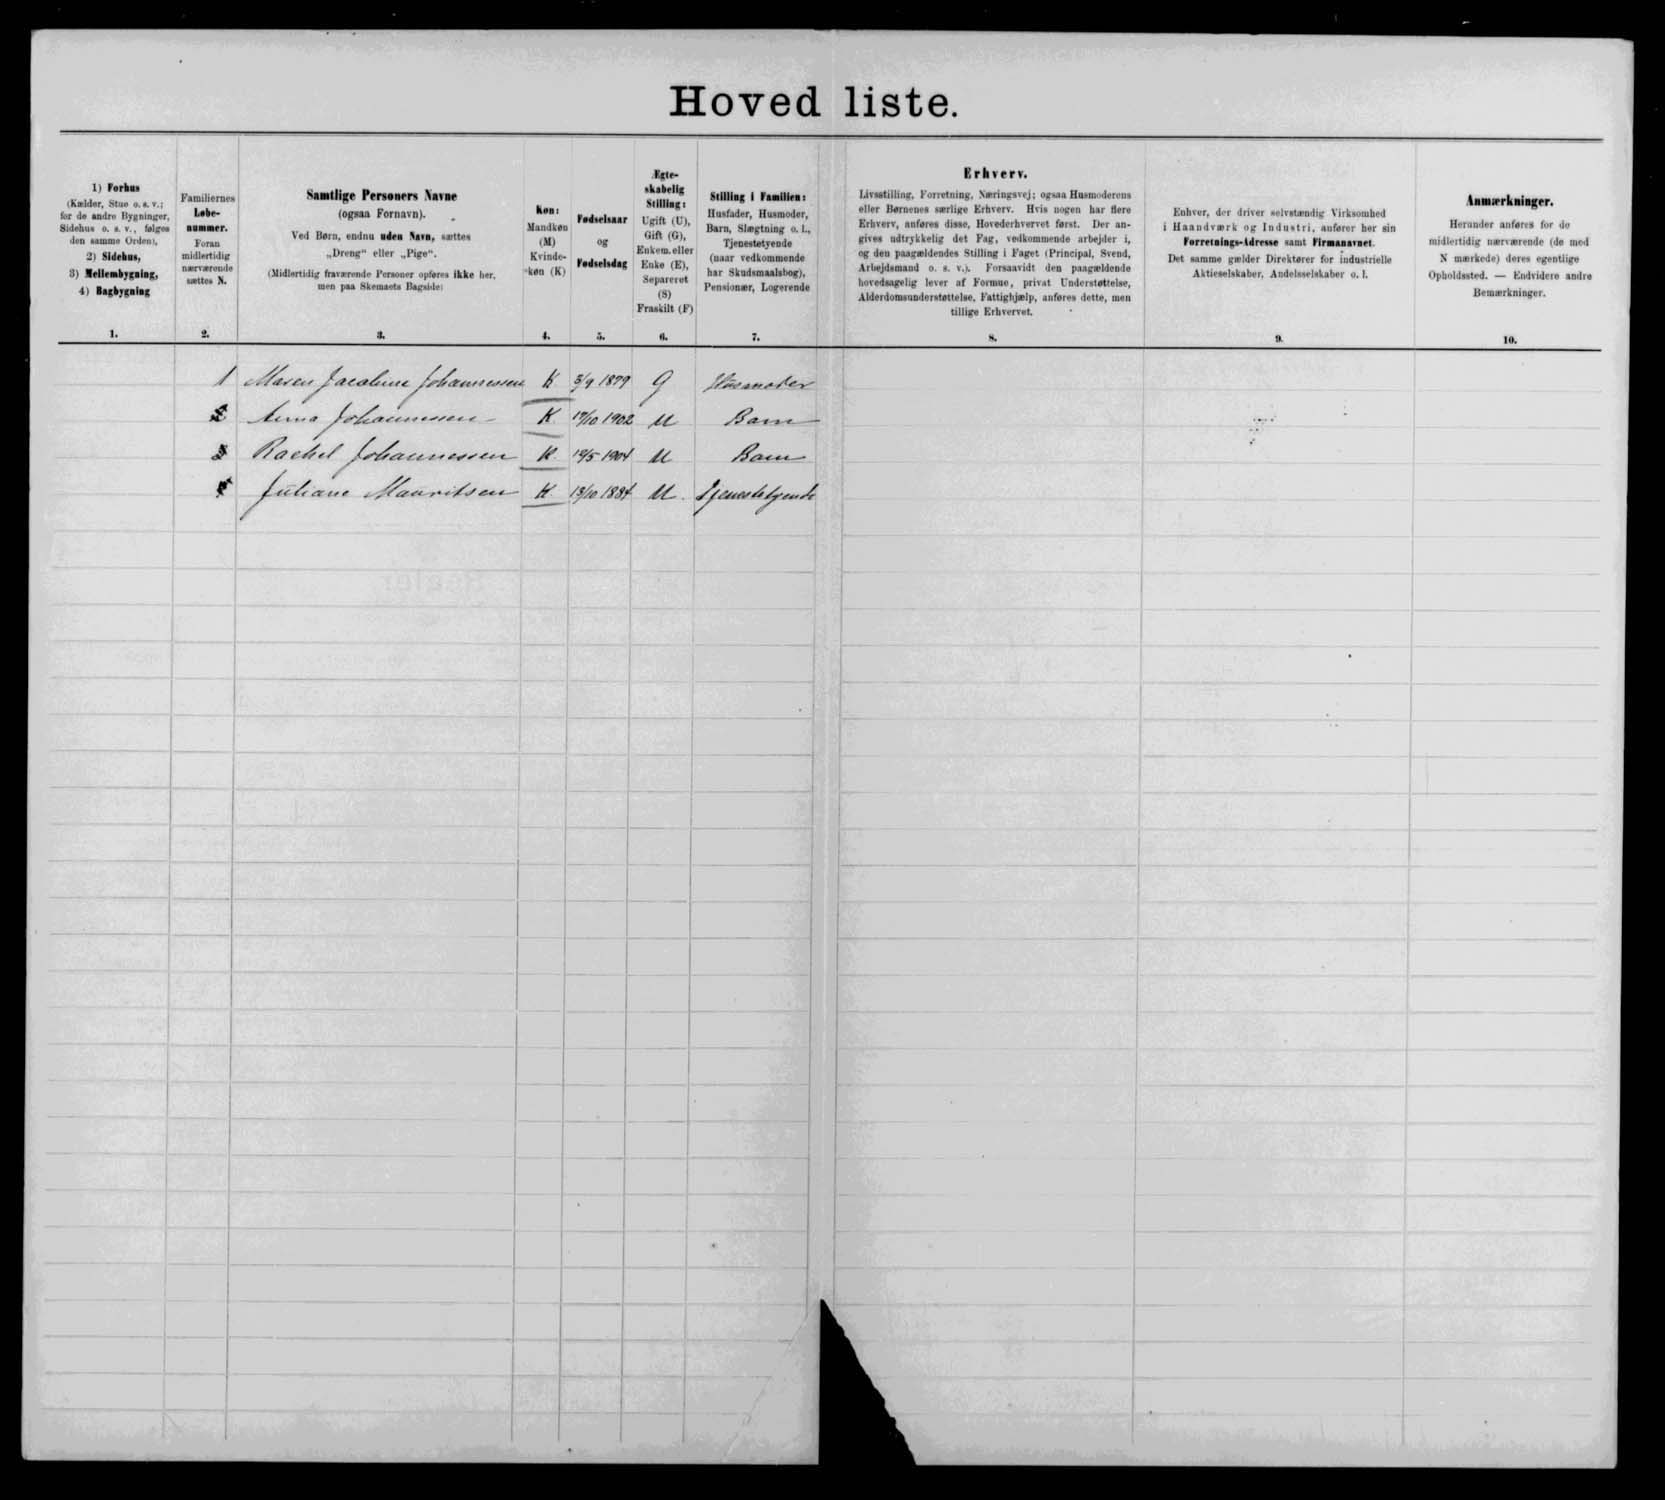 Hovedliste.
1) Forhus
(Kælder, Stue o. s. v.;
for de andre Bygninger,
Sidehus o. s. v., følges
den samme Orden),
2) Sidehus,
3) Mellembygning,
4) Bagbygning
1.
Familiernes
Løbe-
nummer.
Foran
midlertidig
nærværende
sættes N.
2.
Samtlige Personers Navne
(ogsaa Fornavn).
Ved Børn, endnu uden Navn, sættes
„Dreng“ eller „Pige“.
(Midlertidig fraværende Personer opføres ikke her,
men paa Skemaets Bagside)
3.
Køn:
Mandkøn
(M)
Kvinde-
køn (K)
4.
Fødselsaar
og
Fødselsdag
5.
Ægte-
skabelig
Stilling:
Ugift (U),
Gift (G),
Enkem. eller
Enke (E),
Separeret
(S)
Fraskilt (F)
6.
Stilling i Familien:
Husfader, Husmoder,
Barn, Slægtning o. l.,
Tjenestetyende
(naar vedkommende
har Skudsmaalsbog),
Pensionær, Logerende
7.
Erhverv.
Livsstilling, Forretning, Næringsvej; ogsaa Husmoderens
eller Børnenes særlige Erhverv. Hvis nogen har flere
Erhverv, anføres disse, Hovederhvervet først. Der an-
gives udtrykkelig det Fag, vedkommende arbejder i,
og den paagældendes Stilling i Faget (Principal, Svend,
Arbejdsmand o. s. v.). Forsaavidt den paagældende
hovedsagelig lever af Formue, privat Understøttelse,
Alderdomsunderstøttelse, Fattighjælp, anføres dette, men
tillige Erhvervet.
8.
Enhver, der driver selvstændig Virksomhed
i Haandværk og Industri, anfører her sin
Forretnings-Adresse samt Firmanavnet.
Det samme gælder Direktører for industrielle
Aktieselskaber, Andelsselskaber o. l.
9.
Anmærkninger.
Herunder anføres for de
midlertidig nærværende (de med
N mærkede) deres egentlige
Opholdssted. — Endvidere andre
Bemærkninger.
10.
1 Maren Jacobine Johannessen K 5/9 1879 G Husmoder
Anna Johannessen K 17/10 1902 U Barn
Rachel Johannessen K. 19/5 1904 U Barn
Juliane Mauritsen K. 13/10 1884 U. Tjenestetyende